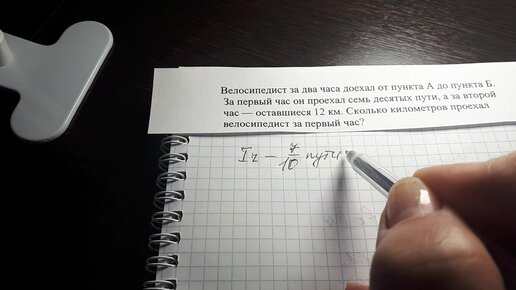 Велосипедист за два часа доехал от пункта А до пункта Б.
За первый час он проехал семь десятых пути, а за второй
час — оставшиеся 12 км. Сколько километров проехал
велосипедист за первый час?
I ч – 7/10 пути